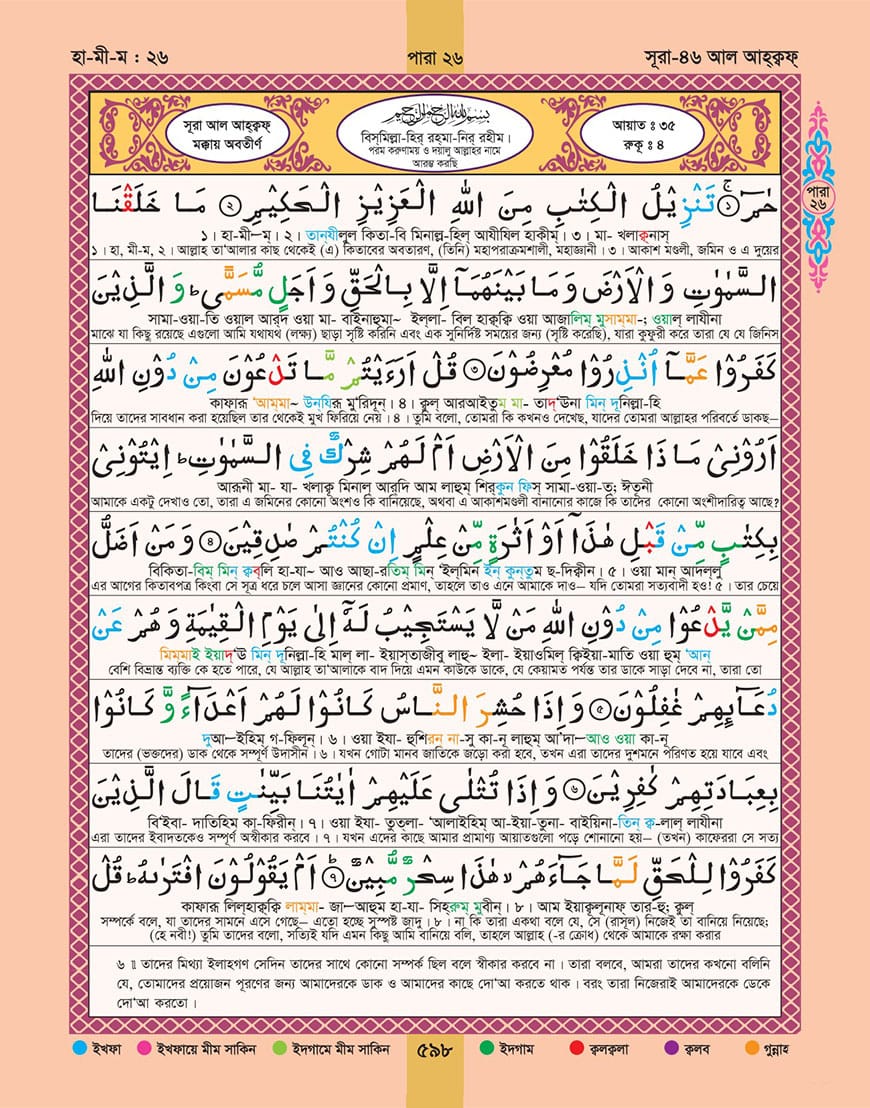 হা-মী-ম : ২৬
পারা ২৬
সূরা-৪৬ আল আহ্ক্বফ্
সূরা আল আহ্ক্বফ্
মক্কায় অবতীর্ণ
بِسْمِ اللهِ الرَّحْمٰنِ الرَّحِيْمِ
বিস্‌মিল্লা-হির্ রহ্‌মা-নির্ রহীম।
পরম করুণাময় ও দয়ালু আল্লাহর নামে
আরম্ভ করছি
আয়াত : ৩৫
রুকূ : ৪
পারা
২৬
حٰمٓ ۚ﴿۱﴾ تَنْزِيْلُ الْكِتٰبِ مِنَ اللهِ الْعَزِيْزِ الْحَكِيْمِ ﴿۲﴾ مَا خَلَقْنَا
১। হা-মী—ম্। ২। তান্‌যীলুল কিতা-বি মিনাল্ল-হিল্ আযীযিল হাকীম্। ৩। মা- খলাক্বনাস্
১। হা, মী-ম, ২। আল্লাহ তা'আলার কাছ থেকেই (এ) কিতাবের অবতারণ, (তিনি) মহাপরাক্রমশালী, মহাজ্ঞানী। ৩। আকাশ মণ্ডলী, জমিন ও এ দুয়ের
السَّمٰوٰتِ وَالْاَرْضَ وَمَا بَيْنَهُمَاۤ اِلَّا بِالْحَقِّ وَاَجَلٍ مُّسَمًّى ؕ وَالَّذِيْنَ
সামা-ওয়া-তি ওয়াল আর্‌দ্ ওয়া মা- বাইনাহুমা~ ইল্‌লা- বিল হাক্বক্বি ওয়া আজালিম্ মুসাম্‌মা-; ওয়াল্ লাযীনা
মাঝে যা কিছু রয়েছে এগুলো আমি যথাযথ (লক্ষ্য) ছাড়া সৃষ্টি করিনি এবং এক সুনির্দিষ্ট সময়ের জন্য (সৃষ্টি করেছি), যারা কুফুরী করে তারা যে যে জিনিস
كَفَرُوْا عَمَّاۤ اُنْذِرُوْا مُعْرِضُوْنَ ﴿۳﴾ قُلْ اَرَءَيْتُمْ مَّا تَدْعُوْنَ مِنْ دُوْنِ اللهِ
কাফারূ 'আম্‌মা~ উন্‌যিরূ মু'রিদূন্। ৪। কুল্ আরআইতুম মা- তাদ্'ঊনা মিন্ দূনিল্লা-হি
দিয়ে তাদের সাবধান করা হয়েছিল তার থেকেই মুখ ফিরিয়ে নেয় । ৪। তুমি বলো, তোমরা কি কখনও দেখেছ, যাদের তোমরা আল্লাহর পরিবর্তে ডাকছ—
اَرُوْنِيْ مَاذَا خَلَقُوْا مِنَ الْاَرْضِ اَمْ لَهُمْ شِرْكٌ فِى السَّمٰوٰتِ ؕ اِيْتُوْنِيْ
আরূনী মা- যা- খলাক্বূ মিনাল্ আর্‌দি আম লাহুম্ শির্‌কুন ফিস্ সামা-ওয়া-ত; ঈতূনী
আমাকে একটু দেখাও তো, তারা এ জমিনের কোনো অংশও কি বানিয়েছে, অথবা এ আকাশমণ্ডলী বানানোর কাজে কি তাদের কোনো অংশীদারিত্ব আছে?
بِكِتٰبٍ مِّنْ قَبْلِ هٰذَاۤ اَوْ اَثٰرَةٍ مِّنْ عِلْمٍ اِنْ كُنْتُمْ صٰدِقِيْنَ ﴿۴﴾ وَمَنْ اَضَلُّ
বিকিতা-বিম্ মিন্ ক্ববলি হা-যা~ আও আছা-রতিম্ মিন্ 'ইল্‌মিন ইন্ কুন্‌তুম ছ-দিক্বীন। ৫। ওয়া মান্ আদল্‌লু
এর আগের কিতাবপত্র কিংবা সে সূত্র ধরে চলে আসা জ্ঞানের কোনো প্রমাণ, তাহলে তাও এনে আমাকে দাও— যদি তোমরা সত্যবাদী হও! ৫। তার চেয়ে
مِمَّنْ يَّدْعُوْا مِنْ دُوْنِ اللهِ مَنْ لَّا يَسْتَجِيْبُ لَهٗۤ اِلٰى يَوْمِ الْقِيٰمَةِ وَهُمْ عَنْ
মিমমাই ইয়াদ্'উ মিন্ দূনিল্লা-হি মাল্ লা- ইয়াস্তাজীবু লাহু~ ইলা- ইয়াওমিল্ ক্বিইয়া-মাতি ওয়া হুম্ 'আন্
বেশি বিভ্রান্ত ব্যক্তি কে হতে পারে, যে আল্লাহ তা'আলাকে বাদ দিয়ে এমন কাউকে ডাকে, যে কেয়ামত পর্যন্ত তার ডাকে সাড়া দেবে না, তারা তো
دُعَآئِهِمْ غٰفِلُوْنَ ﴿۵﴾ وَاِذَا حُشِرَ النَّاسُ كَانُوْا لَهُمْ اَعْدَآءً وَّكَانُوْا
দুআ—ইহিম্ গ-ফিলূন্। ৬। ওয়া ইযা- হুশিরন্ না-সু কা-নূ লাহুম্ আ'দা—আও ওয়া কা-নূ
তাদের (ভক্তদের) ডাক থেকে সম্পূর্ণ উদাসীন। ৬। যখন গোটা মানব জাতিকে জড়ো করা হবে, তখন এরা তাদের দুশমনে পরিণত হয়ে যাবে এবং
بِعِبَادَتِهِمْ كٰفِرِيْنَ ﴿۶﴾ وَاِذَا تُتْلٰى عَلَيْهِمْ اٰيٰتُنَا بَيِّنٰتٍ قَالَ الَّذِيْنَ
বি'ইবা- দাতিহিম কা-ফিরীন্। ৭। ওয়া ইযা- তুত্‌লা- 'আলাইহিম্ আ-ইয়া-তুনা- বাইয়িনা-তিন্ ক্ব-লাল্ লাযীনা
এরা তাদের ইবাদতকেও সম্পূর্ণ অস্বীকার করবে। ৭। যখন এদের কাছে আমার প্রামাণ্য আয়াতগুলো পড়ে শোনানো হয়— (তখন) কাফেররা সে সত্য
كَفَرُوْا لِلْحَقِّ لَمَّا جَآءَهُمْ ۙ هٰذَا سِحْرٌ مُّبِيْنٌ ﴿۷﴾ اَمْ يَقُوْلُوْنَ افْتَرٰىهُ ؕ قُلْ
কাফারূ লিল্‌হাক্বক্বি লাম্‌মা- জা—আহুম হা-যা- সিহ্‌রুম্ মুবীন্। ৮। আম ইয়াক্বূলূনাফ্ তার-হু; কুল্
সম্পর্কে বলে, যা তাদের সামনে এসে গেছে— এতো হচ্ছে সুস্পষ্ট জাদু। ৮। না কি তারা একথা বলে যে, সে (রাসূল) নিজেই তা বানিয়ে নিয়েছে;
(হে নবী!) তুমি তাদের বলো, সত্যিই যদি এমন কিছু আমি বানিয়ে বলি, তাহলে আল্লাহ (-র ক্রোধ) থেকে আমাকে রক্ষা করার
৬ ॥ তাদের মিথ্যা ইলাহগণ সেদিন তাদের সাথে কোনো সম্পর্ক ছিল বলে স্বীকার করবে না। তারা বলবে, আমরা তাদের কখনো বলিনি
যে, তোমাদের প্রয়োজন পূরণের জন্য আমাদেরকে ডাক ও আমাদের কাছে দো'আ করতে থাক। বরং তারা নিজেরাই আমাদেরকে ডেকে
দো'আ করতো।
ইখফা
ইখফায়ে মীম সাকিন
ইদগামে মীম সাকিন
৫৯৮
ইদগাম
ক্বলক্বলা
ক্বলব
গুন্নাহ